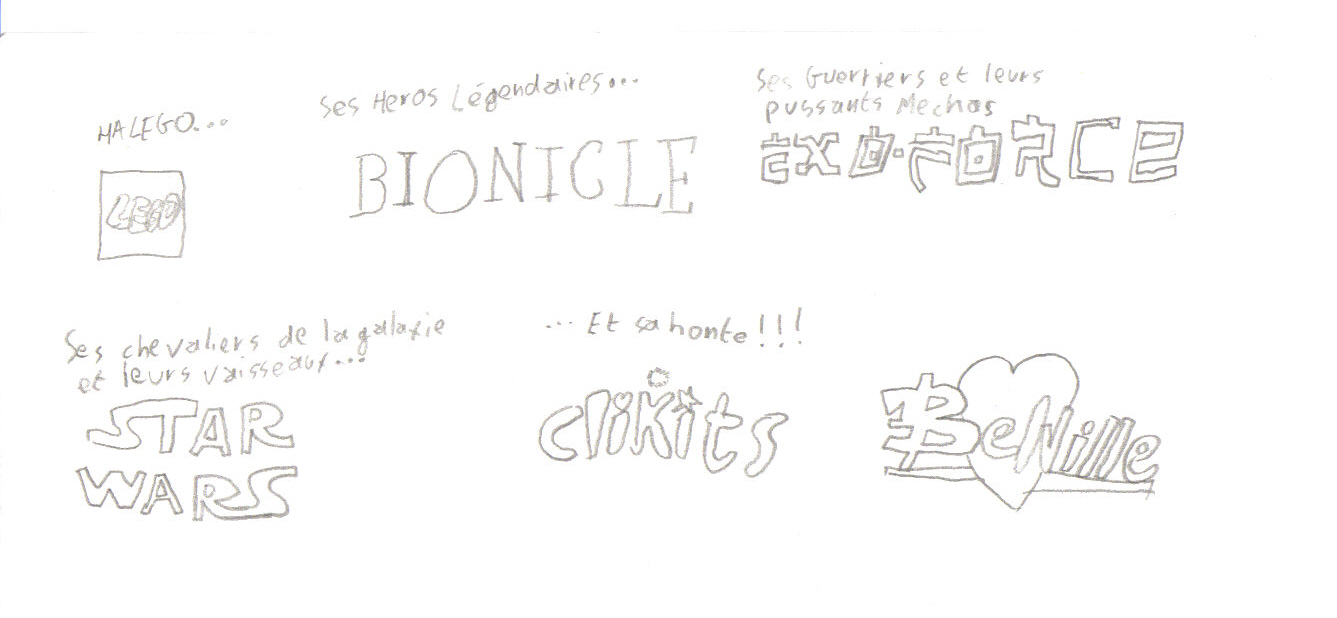 MALEGO...
LEGO
Ses Heros Légendaires...
BIONICLE
Ses Guerriers et leurs
pussants Mechas
EXO-FORCE
Ses chevaliers de la galaxie
et leurs vaisseaux...
STAR
WARS
... Et sa honte!!!
clikits
BeVille